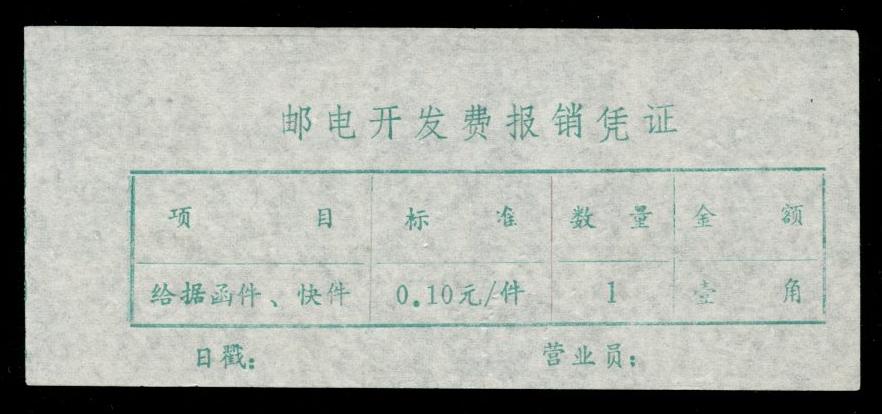 邮电开发费报销凭证
项目 标准 数量 金额
给据函件、快件 0.10元/件 1 壹角
日戳: 营业员: